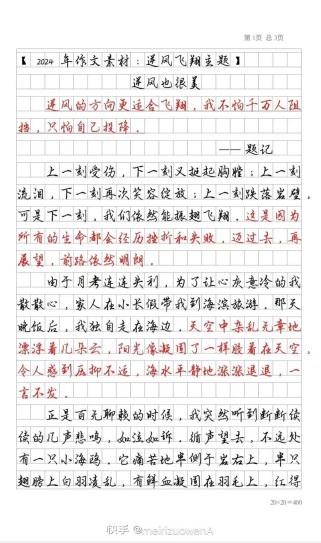 第1页 总3页
【2024年作文素材：逆风飞翔主题】
逆风也很美
逆风的方向更适合飞翔，我不怕千万人阻
挡，只怕自己投降。
——题记
上一刻受伤，下一刻又挺起胸膛；上一刻
流泪，下一刻再次笑容绽放；上一刻跌落岩壁，
可是下一刻，我们依然能振翅飞翔。这是因为
所有的生命都会经历挫折和失败，迈过去，再
展望，前路依然明朗。
由于月考连连失利，为了让心灰意冷的我
散散心，家人在小长假带我到海滨旅游，那天
晚饭后，我独自走在海边，天空中杂乱无章地
漂浮着几朵云，阳光像凝固了一样胶着在天空，
令人感到压抑不远，海水平静地涨涨退退，一
言不发。
正是百无聊赖的时候，我突然听到断断续
续的几声悲鸣，如泣如诉，循声望去，不远处
有一只小海鸥，它痛苦地半侧于岩石上，半只
翅膀上白羽凌乱，有鲜血凝固在羽毛上，红得
20×20=400
快手 @meirizuowenA